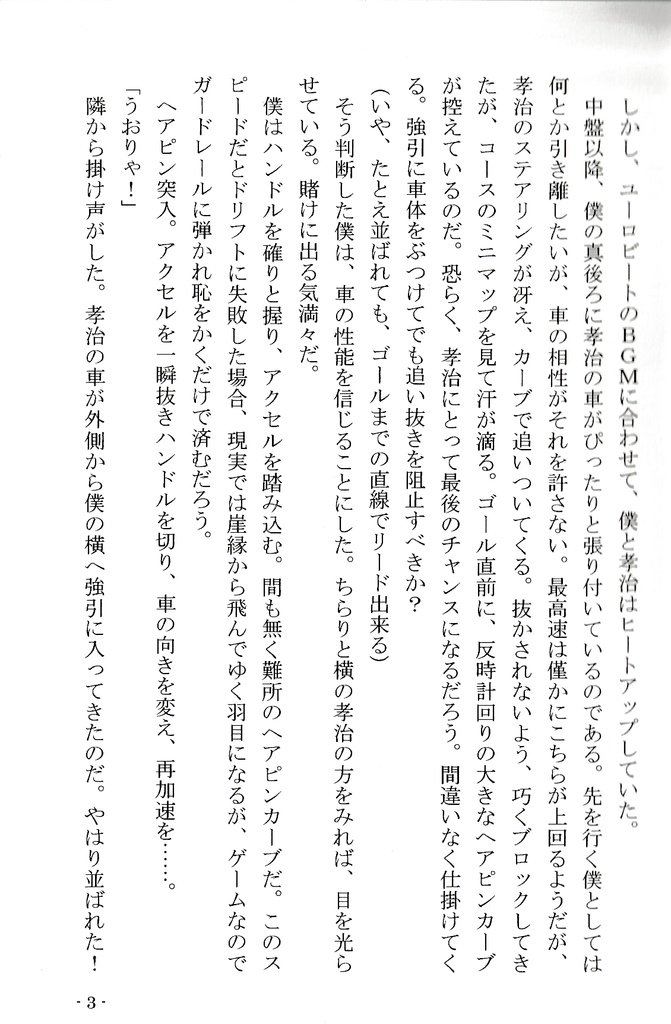 しかし、ユーロビートのBGMに合わせて、僕と孝治はヒートアップしていた。
中盤以降、僕の真後ろに孝治の車がぴったりと張り付いているのである。先を行く僕としては
何とか引き離したいが、車の相性がそれを許さない。最高速は僅かにこちらが上回るようだが、
孝治のステアリングが冴え、カーブで追いついてくる。抜かされないよう、巧くブロックしてき
たが、コースのミニマップを見て汗が滴る。ゴール直前に、反時計回りの大きなヘアピンカーブ
が控えているのだ。恐らく、孝治にとって最後のチャンスになるだろう。間違いなく仕掛けてく
る。強引に車体をぶつけてでも追い抜きを阻止すべきか？
(いや、たとえ並ばれても、ゴールまでの直線でリード出来る)
そう判断した僕は、車の性能を信じることにした。ちらりと横の孝治の方をみれば、目を光ら
せている。賭けに出る気満々だ。
僕はハンドルを確りと握り、アクセルを踏み込む。間も無く難所のヘアピンカーブだ。このス
ピードだとドリフトに失敗した場合、現実では崖縁から飛んでゆく羽目になるが、ゲームなので
ガードレールに弾かれ恥をかくだけで済むだろう。
ヘアピン突入。アクセルを一瞬抜きハンドルを切り、車の向きを変え、再加速を……。
「うおりゃ！」
隣から掛け声がした。孝治の車が外側から僕の横へ強引に入ってきたのだ。やはり並ばれた！
- 3 -